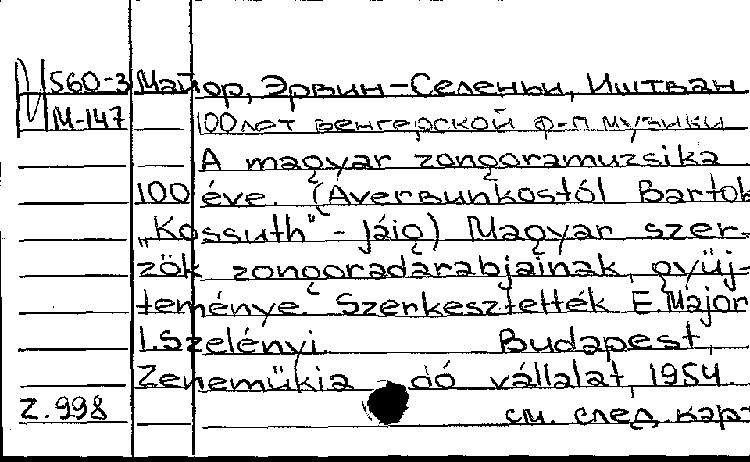 И 560-3 Майор, Эрвин-Селеньи, Иштван
М-147 100 лет венгерской ф-п музыки
A magyar zongoramuzsika
100 éve. (A verbunkostól Bartok
„Kossuth"-jáig) Magyar szer-
zök zongoradarabjainak gyűj-
teménye. Szerkesztették E.Major
I.Szelényi. Budapest,
Zeneműkia dó vállalat, 1954
Z.998 см. след. карт